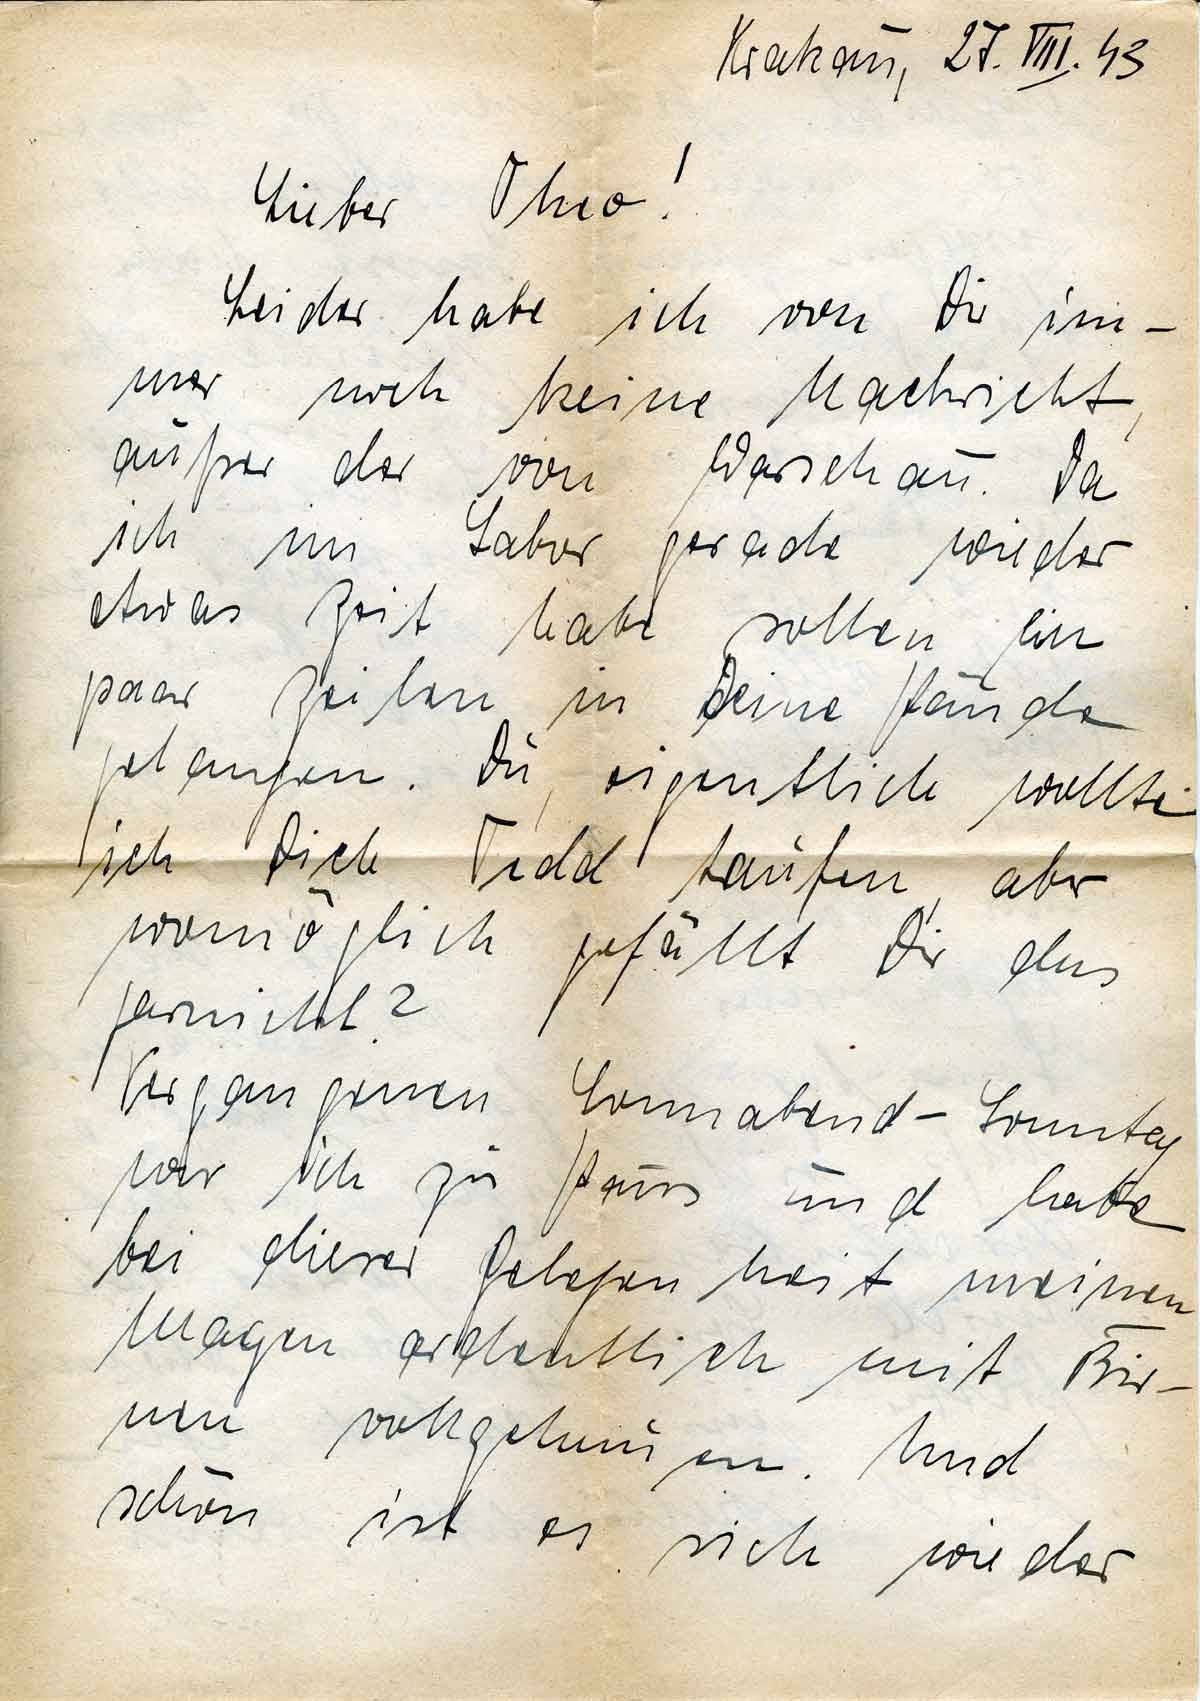 Krakau, 27. VIII. 43
Lieber Theo!
Leider habe ich von Dir im-
mer noch keine Nachricht,
außer der von Warschau. Da
ich im Labor gerade wieder
etwas Zeit habe sollen ein
paar Zeilen in Deine Hände
gelangen. Du, eigentlich wollte
ich Dich Tedd taufen, aber
womöglich gefällt Dir das
garnicht?
Vergangenen Sonnabend-Sonntag
war ich zu Haus und habe
bei dieser Gelegenheit meinen
Magen ordentlich mit Bir-
nen vollgehauen. Und
schön ist es sich wieder